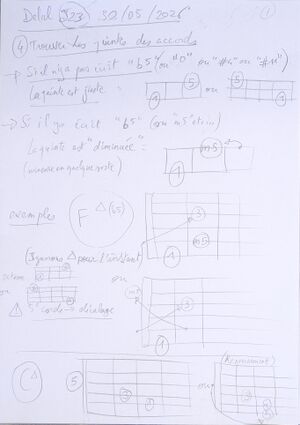 Delal 323 30/05/2026 ①
④ Trouver les quintes des accords
→ S'il n'y a pas écrit "b5" (ou "0" ou "#11" ou "#4")
La quinte est juste
1 5 ou 5 1
→ Si il y a écrit "b5" (ou "m5" etc...)
La quinte est "diminuée" =
(mineure en quelque sorte)
m5
1
exemples F △(b5)
3
m5
1
(Ignorons △ pour l'instant) ou
octave
ou
m5
3
⚠ 5e corde → décalage
1
C△ 5 ou (Renversement)
3